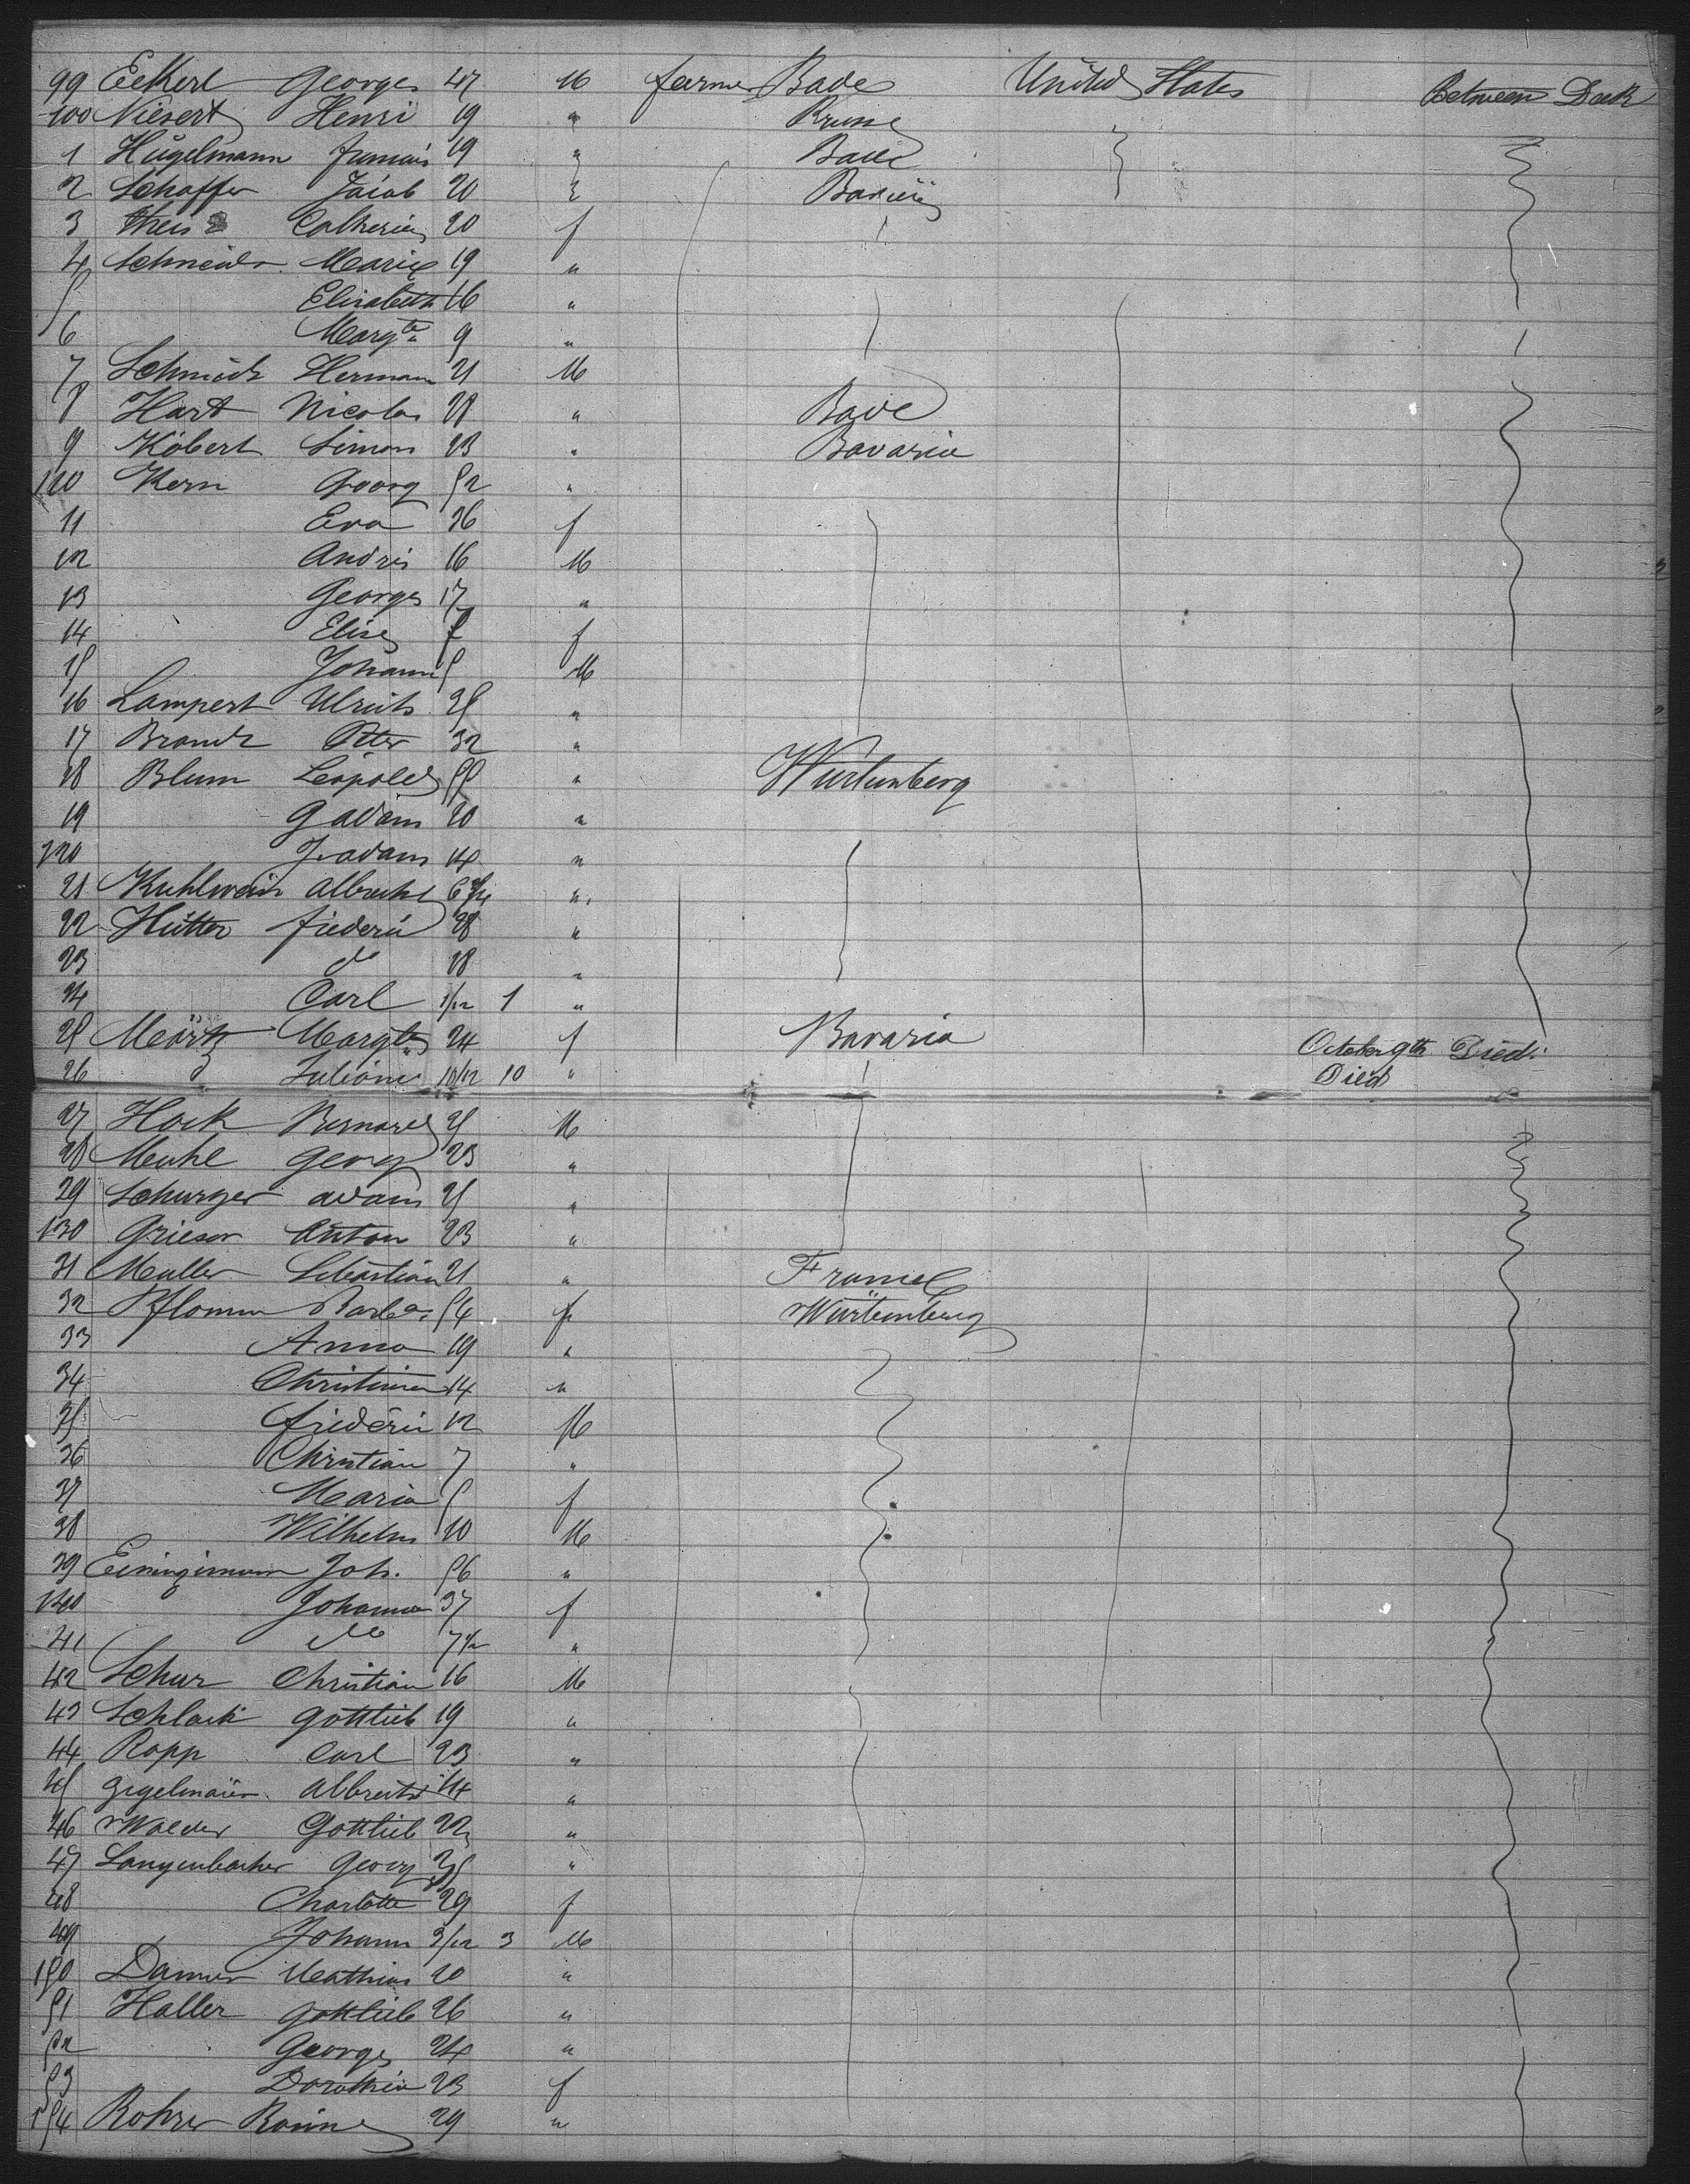 99 Eckert Georges 47 M farmer Bade United States Between Deck
100 Niesert Henri 19 " Prusse
1 Hügelmann 19 " Bade
2 Schaffer Jacob 20 " Baviere
3 Theis Catherine 20 f
4 Schneider Marie 19 "
5 Elisabeth 16 "
6 Margte 9 "
7 Schmidt Hermann 21 M
8 Hart Nicolas 28 " Bade
9 Köbert Simon 23 " Bavaria
110 Kern Georg 52 "
11 Eva 36 f
12 Andrés 16 M
13 Georges 17 "
14 Elise f
15 Johann 5 M
16 Lampert Ulrich 25 "
17 Brandt Peter 32 "
18 Blum Leopold 55 " Wurtemberg
19 G adam 20 "
120 J. adam 14 "
21 Kuhlwein Albrecht "
22 Hütter fiederic 28 "
23 do 18 "
24 Carl 1/12 1 "
25 Meärtz Margte 24 f Bavaria October 9th Died.
26 Juliane 10/12 10 " Died
27 Hock Bernard 25 M
28 Meuhl Georg 23 "
29 Schurger adam 25 "
130 Grieser Anton 23 "
31 Muller Sebastian 21 " France
32 Pflomm Barba. 54 f Würtemberg
33 Anna 19 "
34 Christiana 14 "
35 friedéric 12 M
36 Christian 7 "
37 Maria 5 f
38 Wilhelm 10 M
39 Joh. 56 "
140 Johanna 37 f
41 do "
42 Schur Christian 16 M
43 Schlack Gottlieb 19 "
44 Rapp Carl 23 "
45 Gegelmaier Albrecht 44 "
46 Walder Gottlieb 22 "
47 Langenbacher Georg 35 "
48 Charlotte 29 f
49 Johann 3/12 3 M
150 Danner Mathias 20 "
51 Haller Gottlieb 26 "
52 Georges 24 "
53 Dorothéa 23 f
154 Rohrer Rosine 29 "